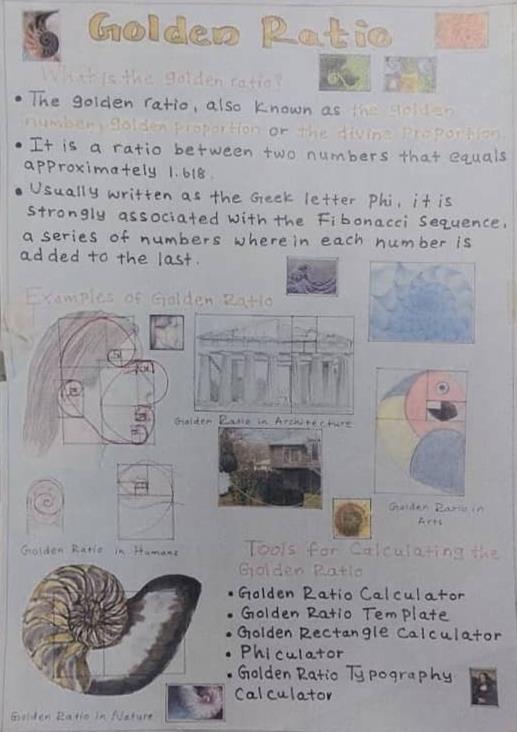 Golden Ratio
What is the golden ratio?
• The golden ratio, also known as the golden
number, golden proportion or the divine Proportion.
• It is a ratio between two numbers that equals
approximately 1.618.
• Usually written as the Geek letter Phi, it is
strongly associated with the Fibonacci Sequence,
a series of numbers where in each number is
added to the last.
Examples of Golden Ratio
Golden Ratio in Architecture
Golden Ratio in
Arts
Golden Ratio in Humans
Tools for Calculating the
Golden Ratio
• Golden Ratio Calculator
• Golden Ratio Template
• Golden Rectangle Calculator
• Phiculator
• Golden Ratio Typography
Calculator
Golden Ratio in Nature